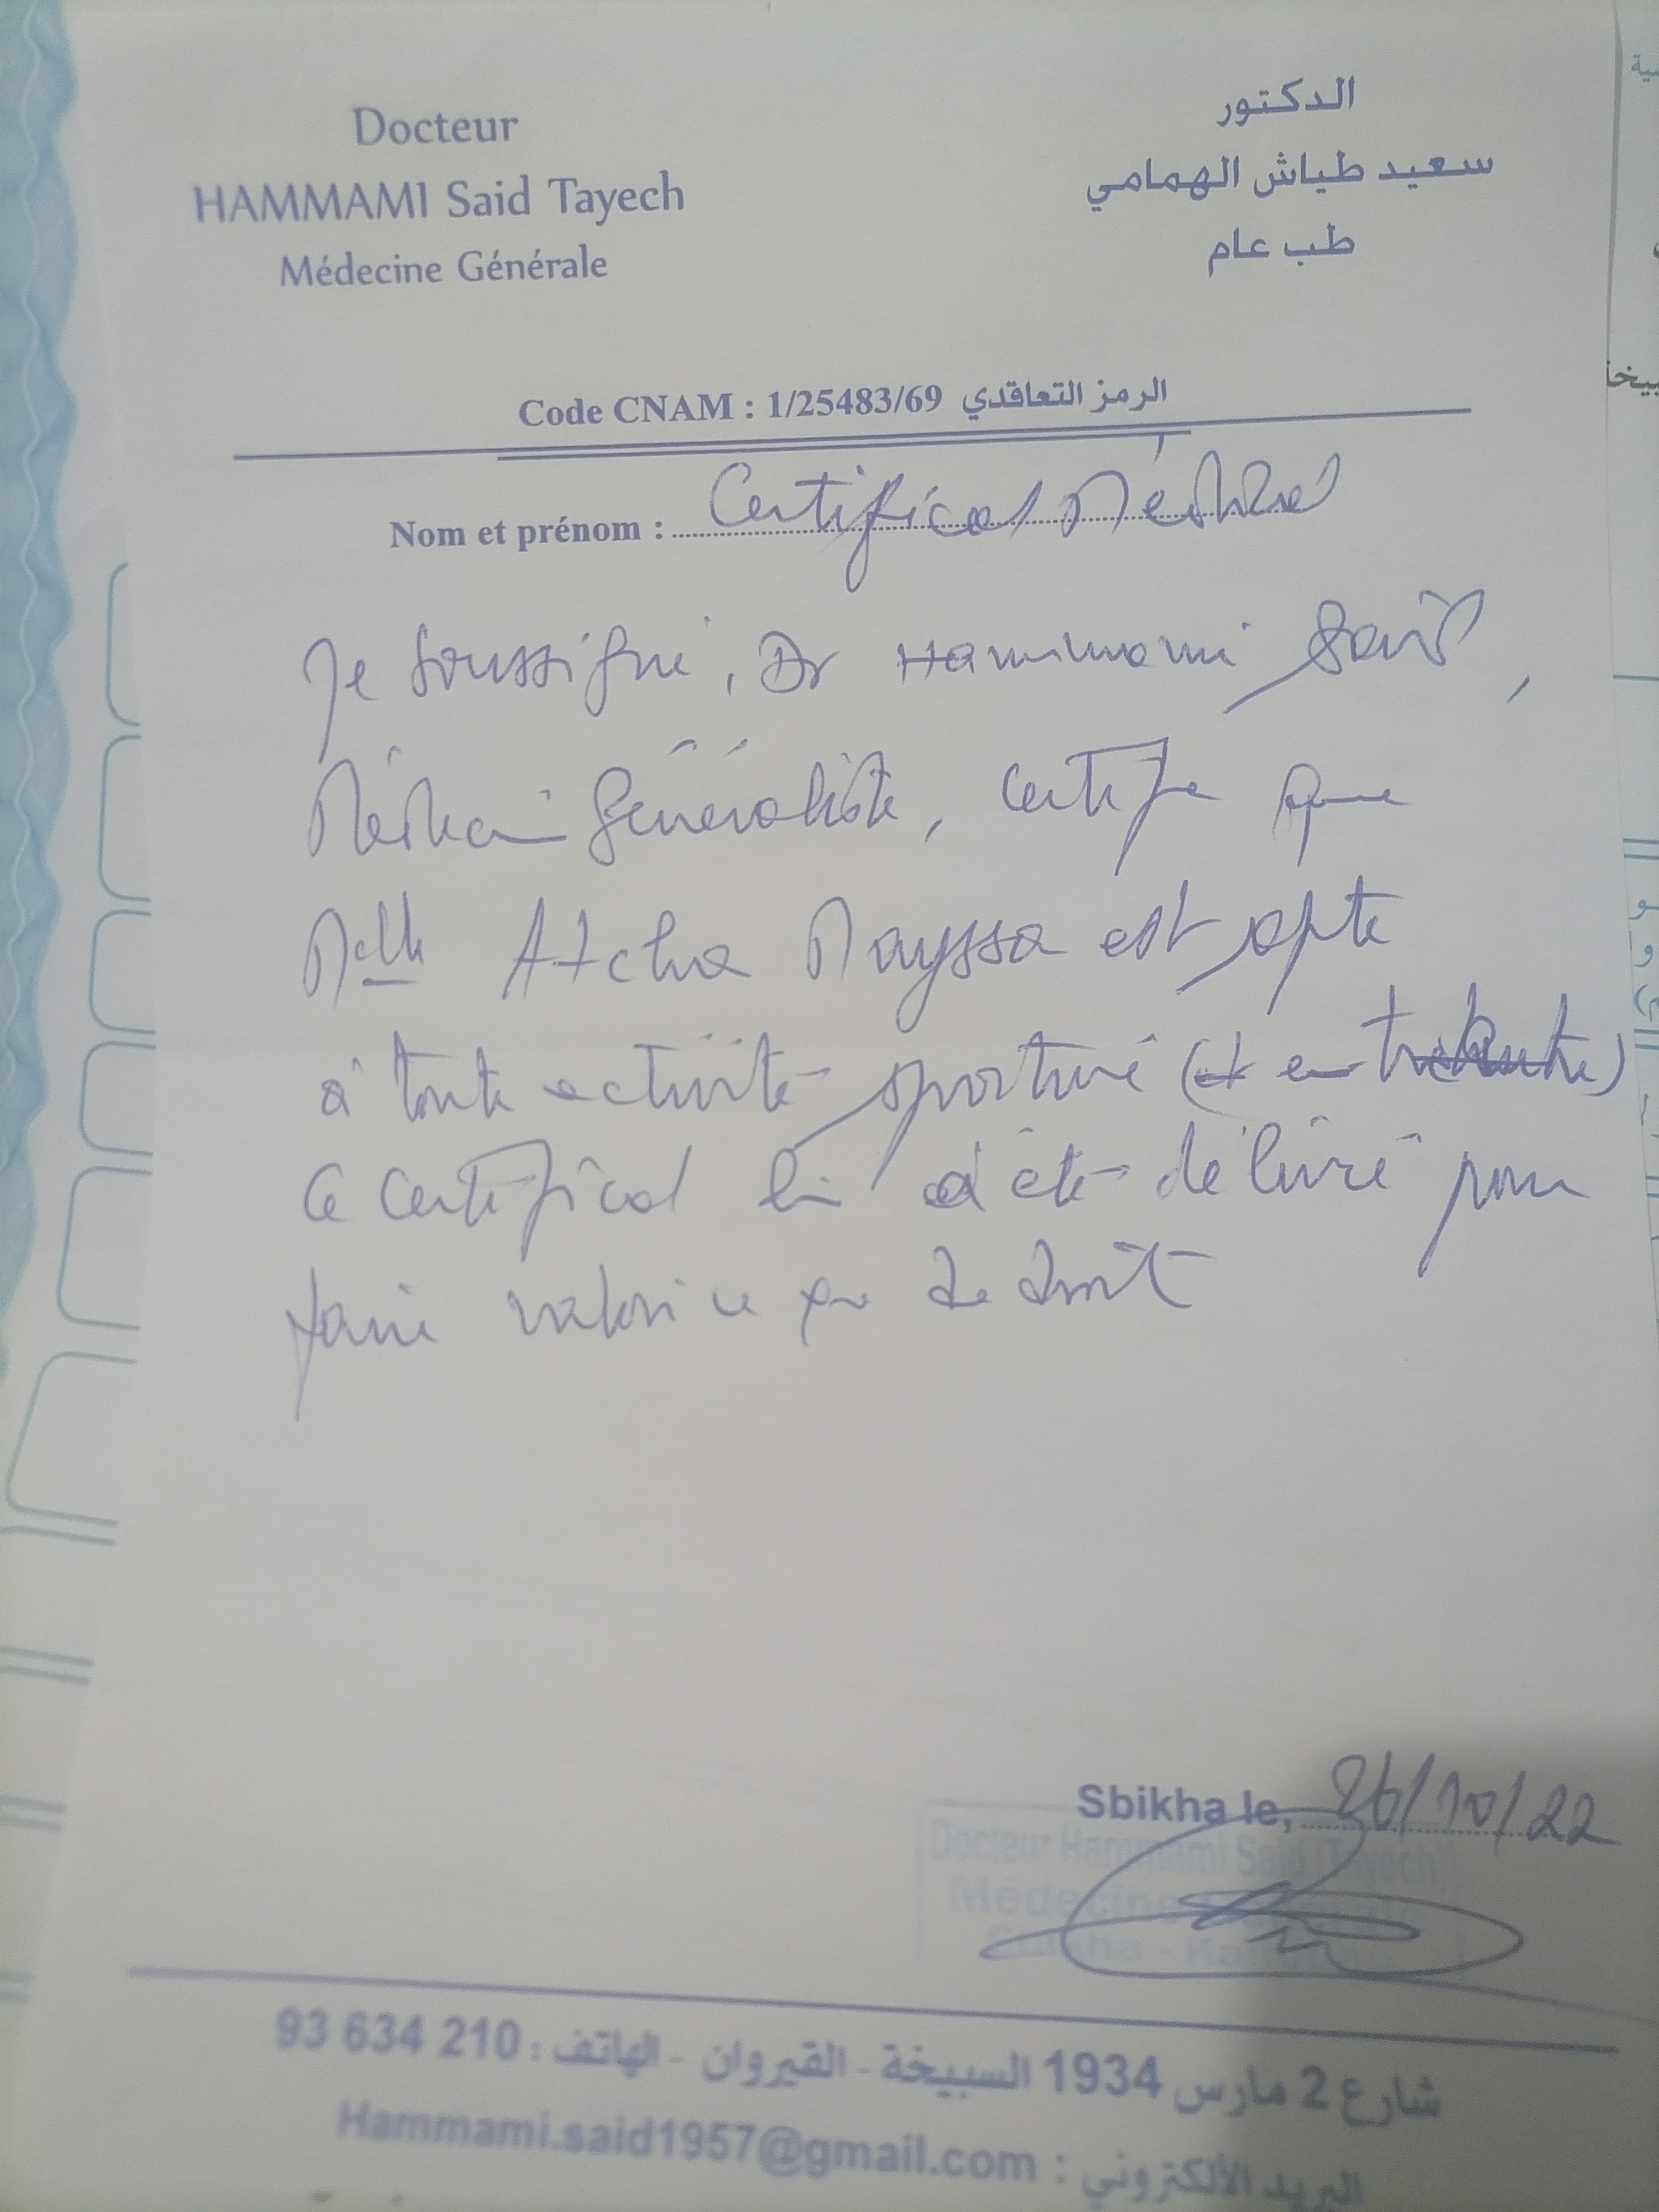 Docteur
HAMMAMI Said Tayech
Médecine Générale
الدكتور
سعيد طياش الهمامي
طب عام
Code CNAM : 1/25483/69 الرمز التعاقدي
Nom et prénom : Certificat Médical
Je soussigné, Dr Hammami Said,
Médecin Généraliste, certifie que
Melle Atcha Mayssa est apte
à toute activité sportive (et en
Ce certificat lui a été délivré pour
faire valoir ce que de droit
Sbikha le, 26/10/22
Docteur Hammami Said Tayech
Médecine Générale
Sbikha - Kairouan
شارع 2 مارس 1934 السبيخة - القيروان - الهاتف : 93 634 210
البريد الألكتروني : Hammami.said1957@gmail.com